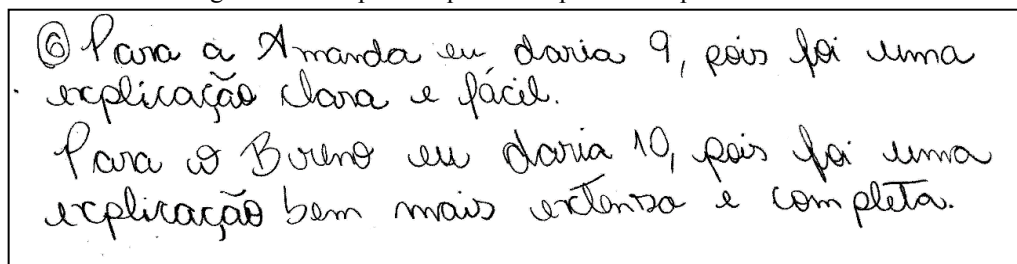 ⑥ Para a Amanda eu daria 9, pois foi uma
explicação clara e fácil.
Para o Breno eu daria 10, pois foi uma
explicação bem mais extensa e completa.